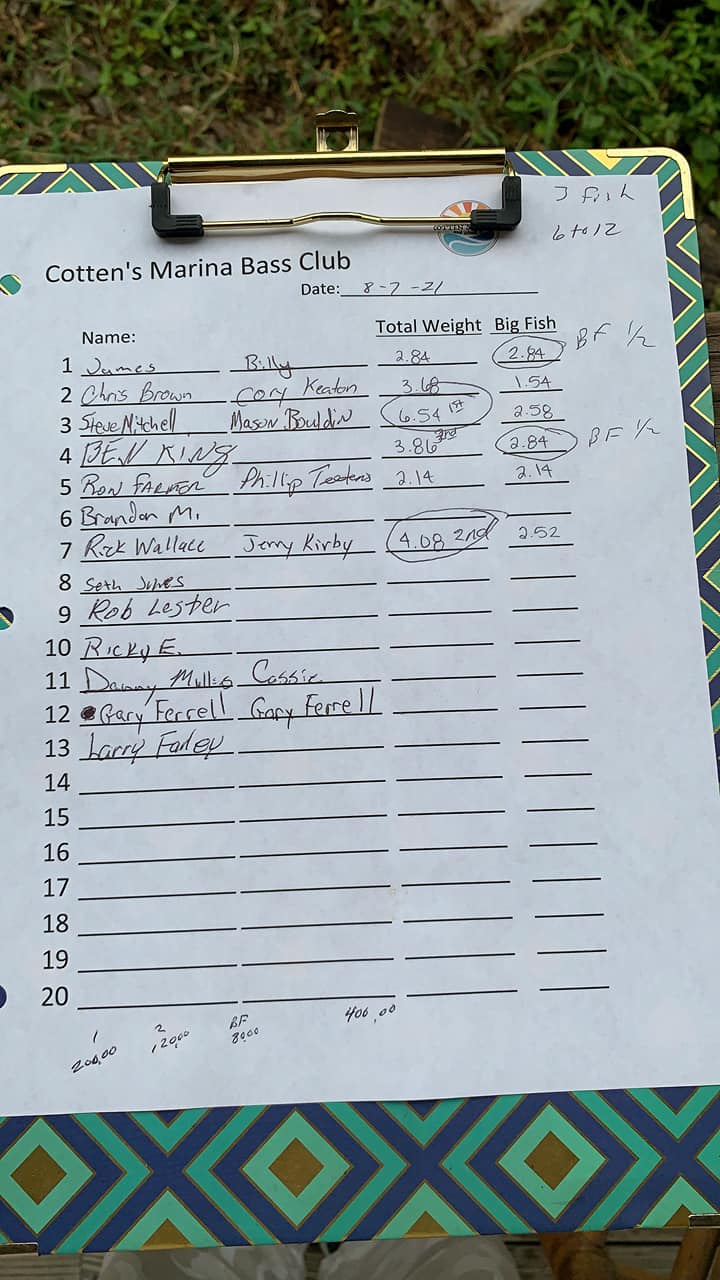 3 fish
6 to 12
Cotten's Marina Bass Club
Date: 8-7-21
Name: Total Weight Big Fish
1 James Billy 2.84 2.84 BF 1/2
2 Chris Brown Cory Keaton 3.68 1.54
3 Steve Mitchell Mason Bouldin 6.54 1st 2.58
4 BEN KING 3.86 3rd 2.84 BF 1/2
5 RON FARMER Phillip 2.14 2.14
6 Brandon M.
7 Rick Wallace Jerry Kirby 4.08 2nd 2.52
8 Seth
9 Rob Lester
10 Ricky E.
11 Danny Mullis Cassie
12 Gary Ferrell Gary Ferrell
13 Larry Farley
14
15
16
17
18
19
20
1 2 BF
200,00 120,00 80,00 400,00